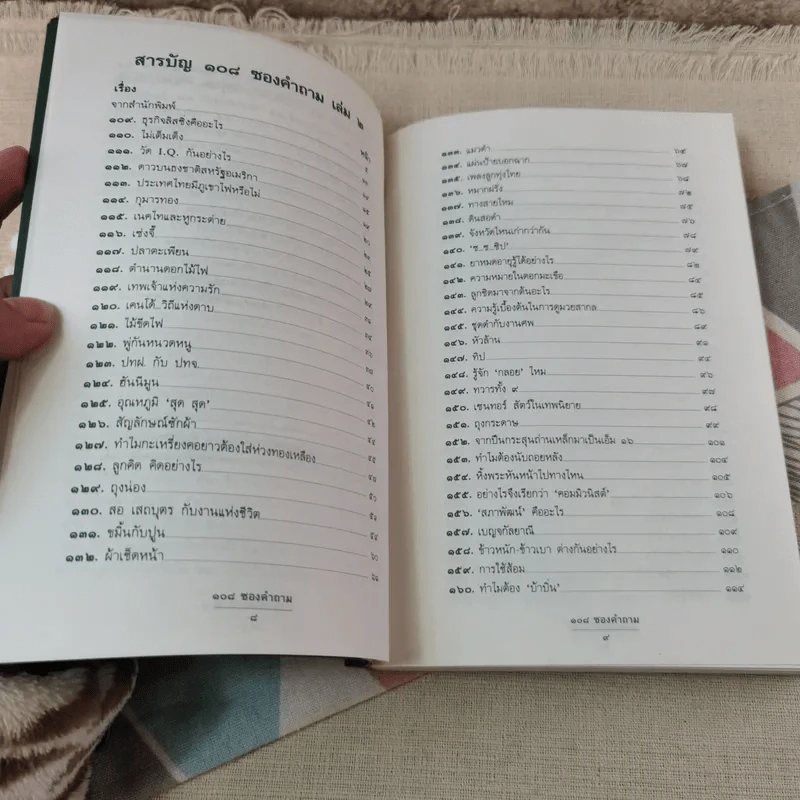 สารบัญ ๑๐๘ ซองคำถาม เล่ม ๒
เรื่อง
หน้า
จากสำนักพิมพ์
๑๐๙. ธุรกิจลิสซิ่งคืออะไร
๑๑๐. ไม่เต็มเต็ง
๑๑๑. วัด I.Q. กันอย่างไร
๑๑๒. ดาวบนธงชาติสหรัฐอเมริกา
๑๑๓. ประเทศไทยมีภูเขาไฟหรือไม่
๑๑๔. กุมารทอง
๑๑๕. เนคไทและหูกระต่าย
๑๑๖. เช่งจี๊
๑๑๗. ปลาตะเพียน
๑๑๘. ตำนานดอกไม้ไฟ
๑๑๙. เทพเจ้าแห่งความรัก
๑๒๐. เคนโด้..วิถีแห่งดาบ
๑๒๑. ไม้ขีดไฟ
๑๒๒. พู่กันหนวดหนู
๑๒๓. ปทฝ. กับ ปทจ.
๑๒๔. ฮันนีมูน
๑๒๕. อุณหภูมิ 'สุด สุด'
๑๒๖. สัญลักษณ์ซักผ้า
๑๒๗. ทำไมกะเหรี่ยงคอยาวต้องใส่ห่วงทองเหลือง
๑๒๘. ลูกคิด คิดอย่างไร
๑๒๙. ถุงน่อง
๑๓๐. สอ เสถบุตร กับงานแห่งชีวิต
๑๓๑. ขมิ้นกับปูน
๑๓๒. ผ้าเช็ดหน้า ๖๑
๑๐๘ ซองคำถาม
๘
๑๓๓. แมวดำ ๖๕
๑๓๔. แผ่นป้ายบอกฉาก ๖๗
๑๓๕. เพลงลูกทุ่งไทย ๖๘
๑๓๖. หมากฝรั่ง ๗๒
๑๓๗. ทางสายไหม ๗๕
๑๓๘. ดินสอดำ ๗๖
๑๓๙. จังหวัดไหนเก่ากว่ากัน ๗๘
๑๔๐. 'ซ..ซ..ซิป' ๗๙
๑๔๑. ยาหมดอายุรู้ได้อย่างไร ๘๒
๑๔๒. ความหมายในดอกมะเขือ ๘๔
๑๔๓. ลูกชิดมาจากต้นอะไร ๘๕
๑๔๔. ความรู้เบื้องต้นในการดูมวยสากล ๘๖
๑๔๕. ชุดดำกับงานศพ ๘๙
๑๔๖. หัวล้าน ๙๑
๑๔๗. ทิป ๙๔
๑๔๘. รู้จัก 'กลอย' ไหม ๙๖
๑๔๙. ทวารทั้ง ๙ ๙๗
๑๕๐. เซนทอร์ สัตว์ในเทพนิยาย ๙๘
๑๕๑. ถุงกระดาษ ๙๙
๑๕๒. จากปืนกระสุนถ่านเหล็กมาเป็นเอ็ม ๑๖ ๑๐๑
๑๕๓. ทำไมต้องนับถอยหลัง ๑๐๔
๑๕๔. หิ้งพระหันหน้าไปทางไหน ๑๐๕
๑๕๕. อย่างไรจึงเรียกว่า 'คอมมิวนิสต์' ๑๐๖
๑๕๖. 'สภาพัฒน์' คืออะไร ๑๐๘
๑๕๗. เบญจกัลยาณี ๑๐๙
๑๕๘. ข้าวหนัก-ข้าวเบา ต่างกันอย่างไร ๑๑๐
๑๕๙. การใช้ส้อม ๑๑๒
๑๖๐. ทำไมต้อง 'บ้าบิ่น' ๑๑๔
๑๐๘ ซองคำถาม
๙